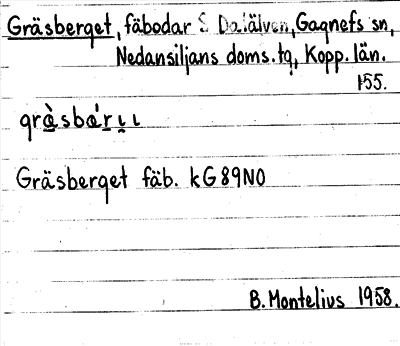 Gräsberget, fäbodar S Dalälven, Gagnefs sn,
Nedansiljans doms.tg, Kopp. län.
155.
Gräsberget fäb. kG89NO
B. Montelius 1958.